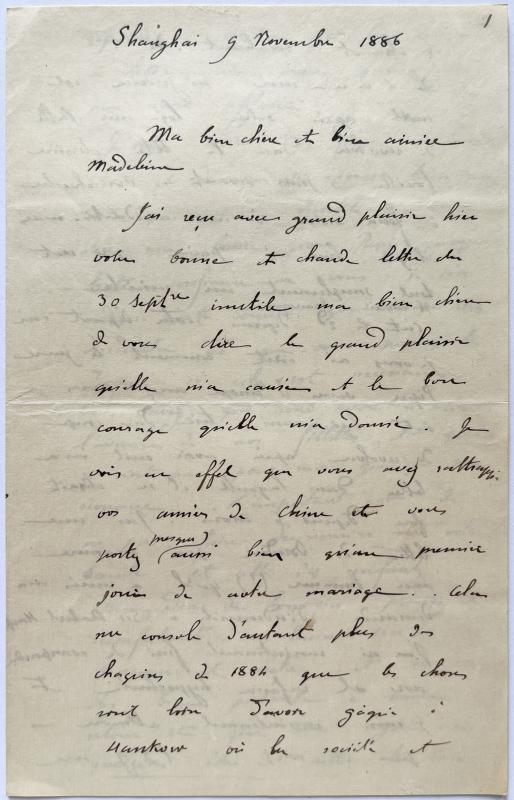 1
Shanghai 9 Novembre 1886
Ma bien chère et bien aimée
Madeleine
J'ai reçu avec grand plaisir hier
votre bonne et chaude lettre du
30 Septbre inutile ma bien chère
de vous dire le grand plaisir
qu'elle m'a causée et le bon
courage qu'elle m'a donné. Je
vois en effet que vous avez rattrappé
vos années de Chine et vous
portez presque aussi bien qu'aux premiers
jours de notre mariage. Cela
me console d'autant plus des
chagrins de 1884 que les choses
sont loin d'avoir gagné à
Hankow où la société et